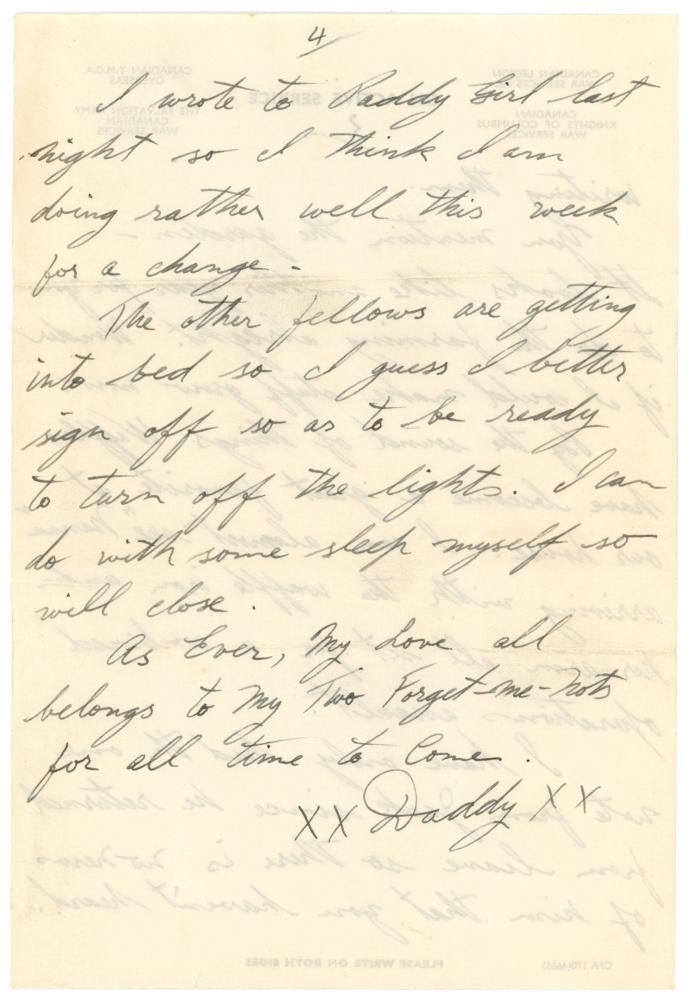 4
I wrote to Paddy Girl last
night so I think I am
doing rather well this week
for a change -
The other fellows are getting
into bed so I guess I better
sign off so as to be ready
to turn off the lights. I can
do with some sleep myself so
will close.
As Ever, My Love all
belongs to My Two Forget-me-nots
for all time to Come.
XX Daddy XX